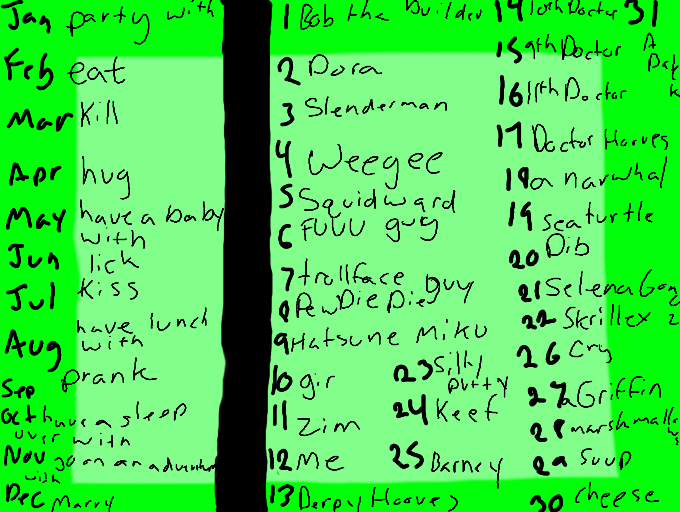 Jan party with
Feb eat
Mar kill
Apr hug
May have a baby
with
Jun lick
Jul kiss
Aug have lunch
with
Sep prank
Oct have a sleep
over with
Nov go on an adventure
with
Dec Marry
1 Bob the builder
2 Dora
3 Slenderman
4 Weegee
5 Squidward
6 FUUU guy
7 trollface guy
8 PewDiePie
9 Hatsune Miku
10 gir
11 Zim
12 Me
13 Derpy Hooves
23 Silly
putty
24 Keef
25 Barney
14 10th Doctor
15 9th Doctor
16 11th Doctor
17 Doctor Hooves
18 a narwhal
19 sea turtle
20 Dib
21 Selena Gom
22 Skrillex
26 Cry
27 a Griffin
28 marshmallo
29 Soup
30 cheese
31
A